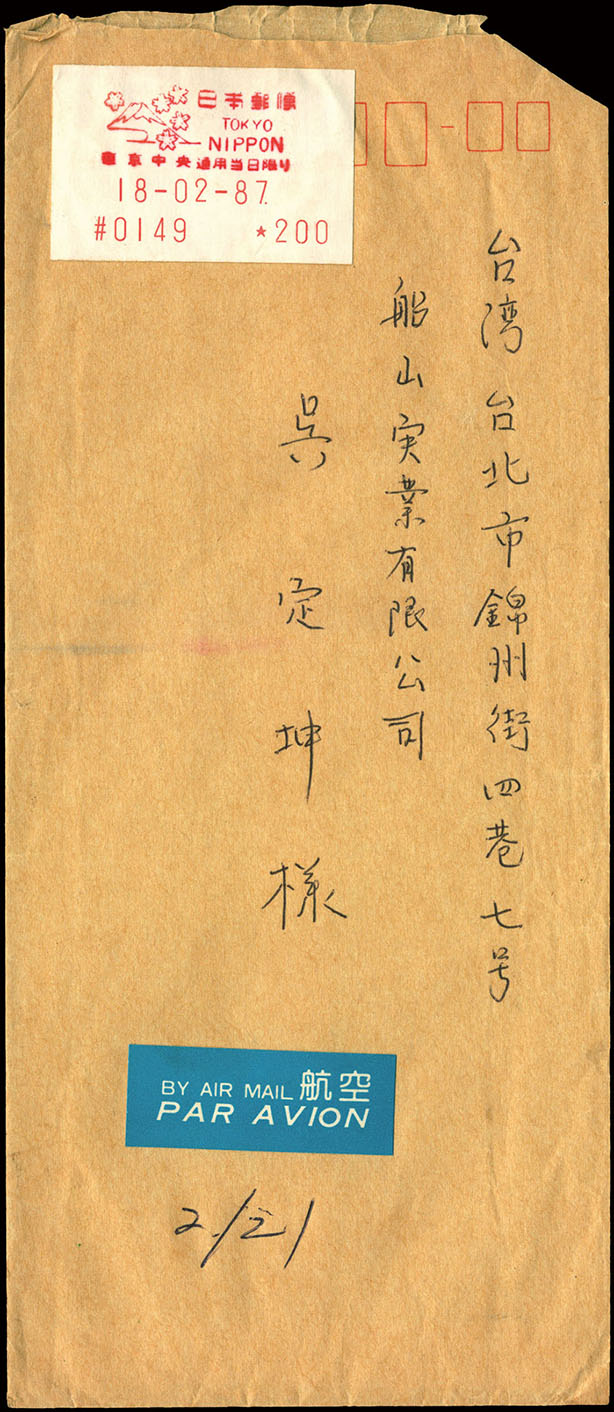 日本郵便
TOKYO
NIPPON
東京中央 通用当日限り
18-02-87.
#0149 *200
台湾台北市錦州街四巷七号
船山実業有限公司
呉定坤様
BY AIR MAIL 航空
PAR AVION
2/21